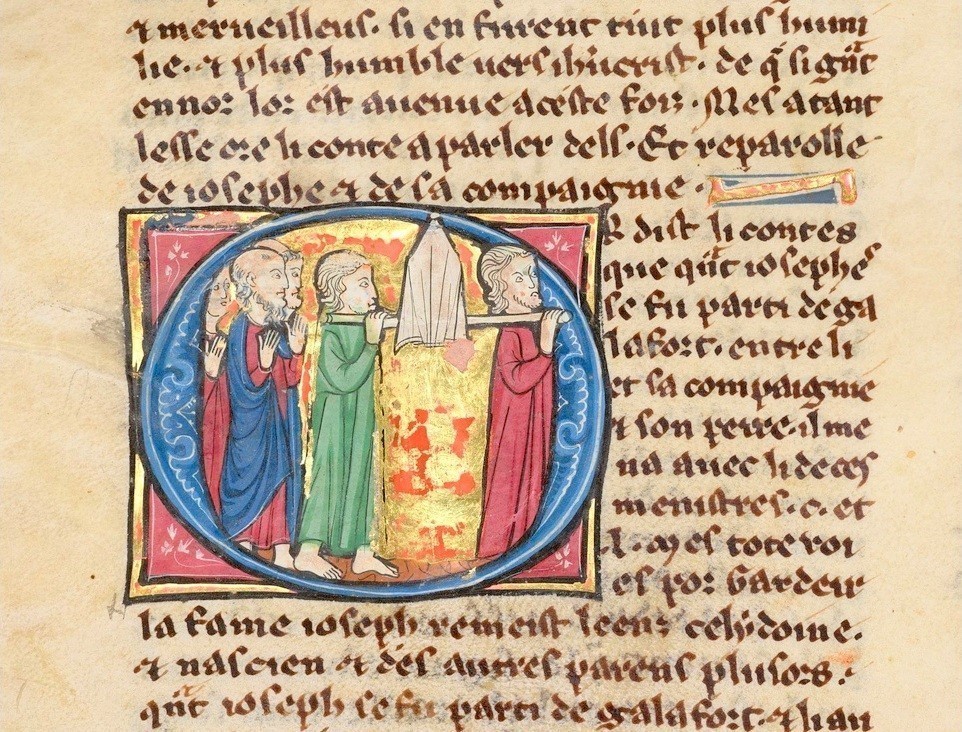 ⁊ merueilleus. si en furent tuit plus humi
lie. ⁊ plus humble uers ih'ucrist. de q̃ si gñt
ennor lor est auenue a ceste foiz. Mes atant
lesse ore li conte a parler dels. Et reparolle
de iosephe ⁊ de sa compaignie.
OR dist li contes
que qũt iosephe
se fu parti de ga
lafort. entre li
et sa compaignie
⁊ son perre. il me
na auec li de ces
menistres .c. et
.l. Mes tote uoi
es por garder
la fame ioseph remeist leenz celydoine.
⁊ nascien ⁊ des autres parens plusors.
qũt ioseph se fu parti de galafort. ⁊ li au